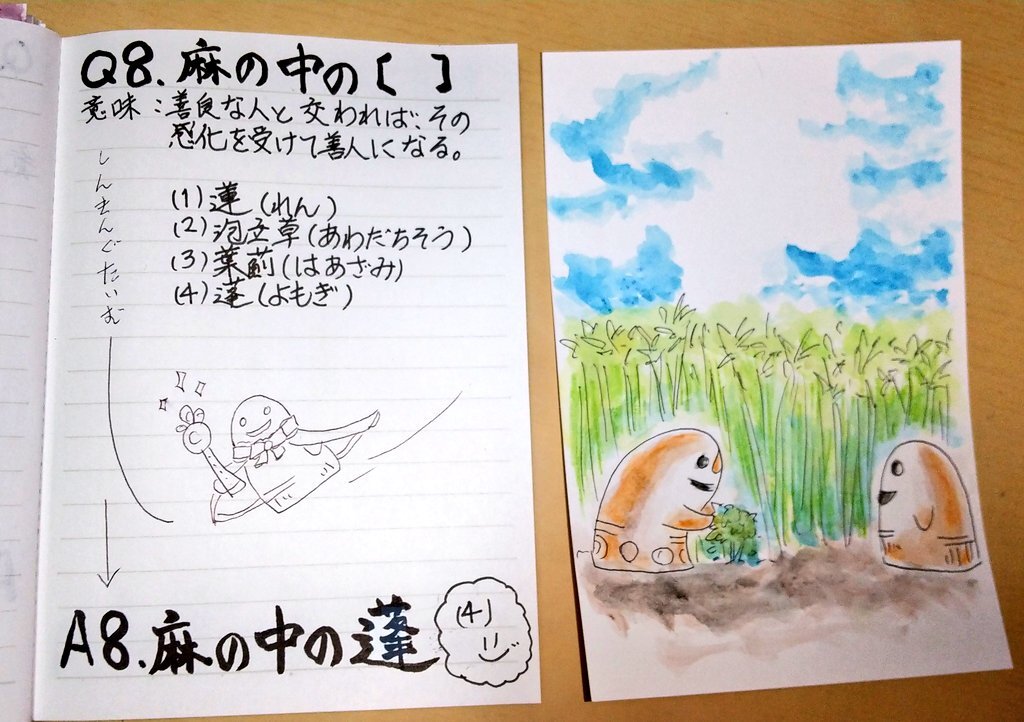 Q8. 麻の中の[ ]
意味:善良な人と交われば、その
感化を受けて善人になる。
しんきんぐたいむ
(1) 蓮 (れん)
(2) 泡立草 (あわだちそう)
(3) 葉薊 (はあざみ)
(4) 蓬 (よもぎ)
A8. 麻の中の蓬
(4)